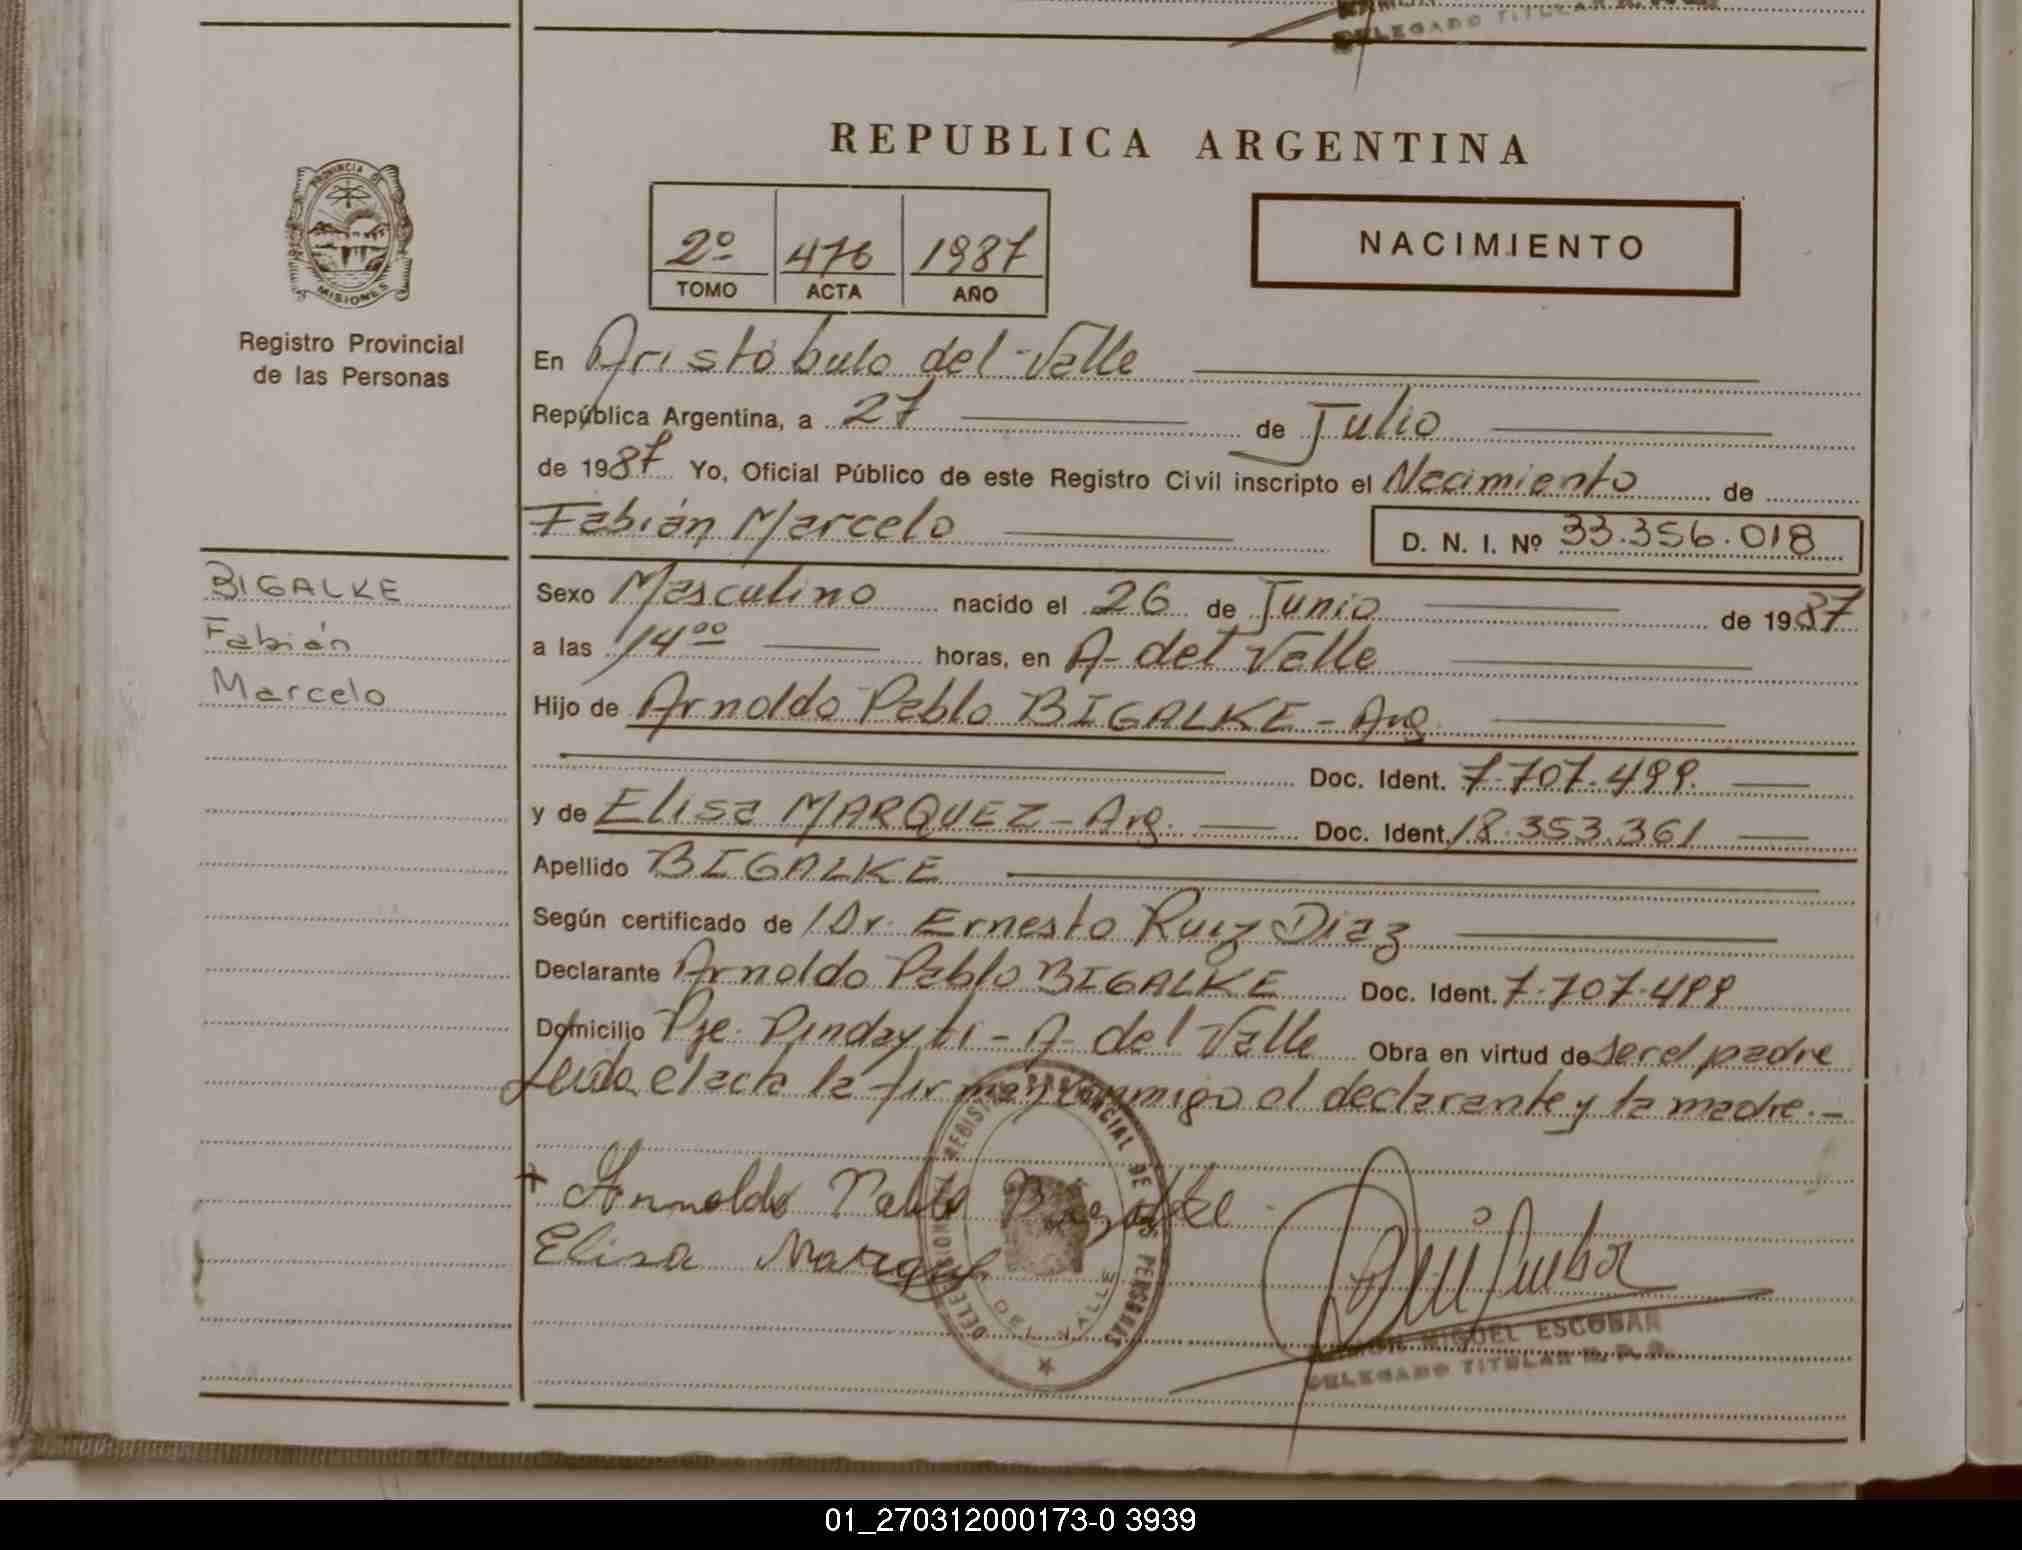 DELEGADO TITULAR
REPUBLICA ARGENTINA
PROVINCIA DE
MISIONES
Registro Provincial
de las Personas
2º 476 1987
TOMO ACTA AÑO
NACIMIENTO
En Aristóbulo del Valle
República Argentina, a 27 de Julio
de 1987 Yo, Oficial Público de este Registro Civil inscripto el Nacimiento de
Fabián Marcelo D. N. I. Nº 33.356.018
BIGALKE
Fabián
Marcelo
Sexo Masculino nacido el 26 de Junio de 1987
a las 14⁰⁰ horas, en A. del Valle
Hijo de Arnoldo Pablo BIGALKE - Arg.
Doc. Ident. 7.707.499.
y de Elisa MARQUEZ - Arg. Doc. Ident. 18.353.361
Apellido BIGALKE
Según certificado de Dr. Ernesto Ruiz Diaz
Declarante Arnoldo Pablo BIGALKE Doc. Ident. 7.707.499
Domicilio Pje. Pindayti - A. del Valle Obra en virtud de ser el padre
Leida el acta la firman conmigo el declarante y la madre.-
+ Arnoldo Pablo Bigalke
Elisa Marquez
DELEGACION REGISTRO PROVINCIAL DE LAS PERSONAS
DEL VALLE
MIGUEL ESCOBAR
DELEGADO TITULAR R. P. P.
01_270312000173-0 3939